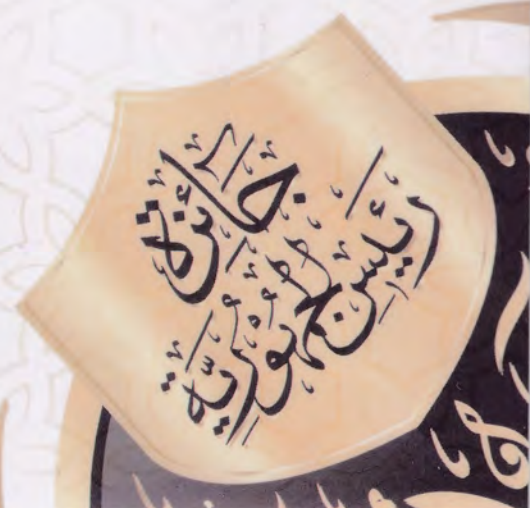 جائزة
رئيس الجمهورية